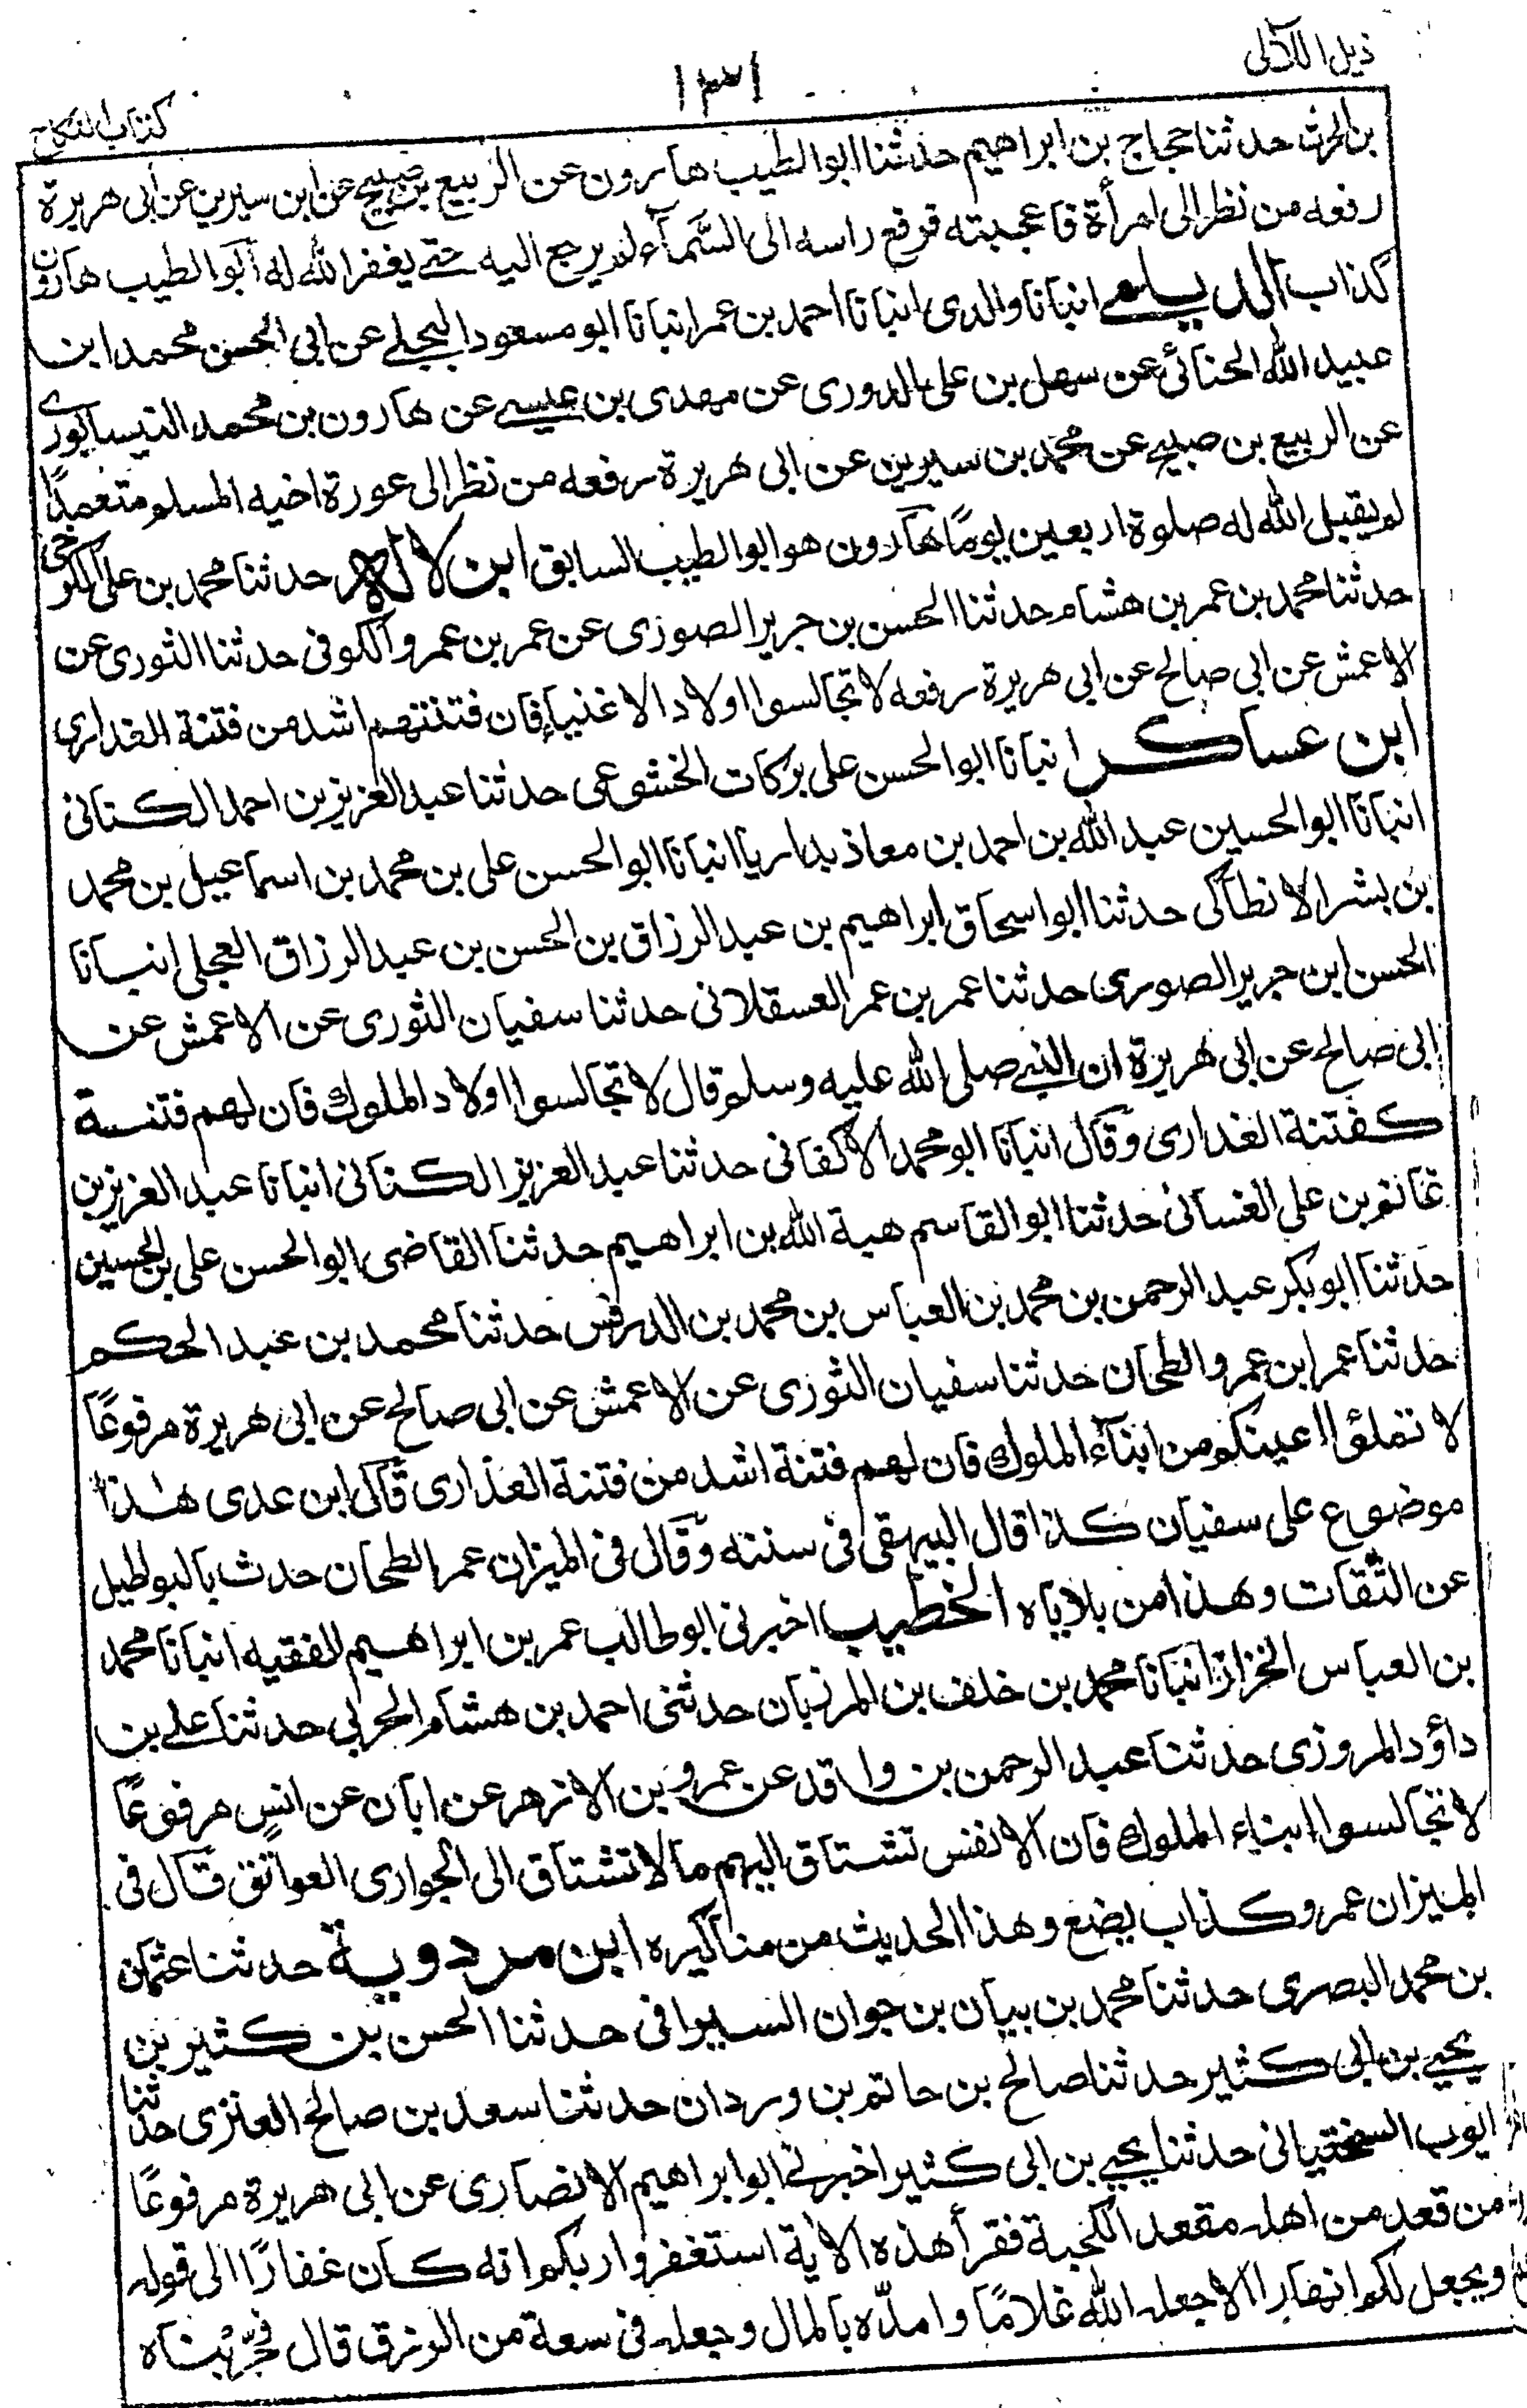 ذيل اللآلى
١٣١
كتاب النكاح
بن الحرث حدثنا حجاج بن ابراهيم حدثنا ابو الطيب هارون عن الربيع بن صبيح عن ابن سيرين عن ابى هريرة
رفعه من نظر الى امرأة فاعجبته فرفع راسه الى السَّمآء لم يرجع اليه حتے يغفر الله له ابو الطيب هارون
كذاب الديلمے انبانا والدى انبانا احمد بن عمر انبانا ابو مسعود البجلے عن ابى الحسن محمد ابن
عبيد الله الحنائى عن سهل بن على الدورى عن مهدى بن عيسے عن هارون بن محمد النيسابورے
عن الربيع بن صبيح عن محمد بن سيرين عن ابى هريرة رفعه من نظر الى عورة اخيه المسلم متعمدًا
لم يقبل الله له صلوة اربعين يومًا هارون هو ابو الطيب السابق ابن لال حدثنا محمد بن على الكرخى
حدثنا محمد بن عمر بن هشام حدثنا الحسن بن جرير الصورى عن عمر بن عمرو الكوفى حدثنا الثورى عن
الاعمش عن ابى صالح عن ابى هريرة رفعه لا تجالسوا اولاد الاغنياء فان فتنتهم اشد من فتنة العذارى
ابن عساكر انبانا ابو الحسن على بركات الخشوعى حدثنا عبد العزيز بن احمد الكتانى
انبانا ابو الحسين عبد الله بن احمد بن معاذ بداريا انبانا ابو الحسن على بن محمد بن اسماعيل بن محمد
بن بشر الانطاكى حدثنا ابو اسحاق ابراهيم بن عبد الرزاق بن الحسن بن عبد الرزاق العجلى انبانا
الحسن ابن جرير الصورى حدثنا عمر بن عمر العسقلانى حدثنا سفيان الثورى عن الاعمش عن
ابى صالح عن ابى هريرة ان النبے صلى الله عليه وسلم قال لا تجالسوا اولاد الملوك فان لهم فتنة
كفتنة العذارى وقال انبانا ابو محمد الاكفانى حدثنا عبد العزيز الكتانى انبانا عبد العزيز بن
غانم بن على الغسانى حدثنا ابو القاسم هبة الله بن ابراهيم حدثنا القاضى ابو الحسن على بن الحسين
حدثنا ابو بكر عبد الرحمن بن محمد بن العباس بن محمد بن الدرفس حدثنا محمد بن عبد الحكم
حدثنا عمر ابن عمرو الطحان حدثنا سفيان الثورى عن الاعمش عن ابى صالح عن ابى هريرة مرفوعًا
لا تملؤا اعينكم من ابنآء الملوك فان لهم فتنة اشد من فتنة العذارى قال ابن عدى هذا
موضوع على سفيان كذا قال البيهقى فى سننه وقال فى الميزان عمر الطحان حدث بالبواطيل
عن الثقات وهذا من بلاياه الخطيب اخبرنى ابو طالب عمر بن ابراهيم الفقيه انبانا محمد
بن العباس الخزاز انبانا محمد بن خلف بن المرزبان حدثنى احمد بن هشام الحربى حدثنا علے بن
داؤد المروزى حدثنا عبد الرحمن بن واقد عن عمرو بن الازهر عن ابان عن انس مرفوعًا
لا تجالسوا ابناء الملوك فان الانفس تشتاق اليهم ما لا تشتاق الى الجوارى العواتق قال فى
الميزان عمرو كذاب يضع وهذا الحديث من مناكيره ابن مردوية حدثنا عثمان
بن محمد البصرى حدثنا محمد بن بيان بن جوان السيرافى حدثنا الحسن بن كثير بن
يحيے بن ابى كثير حدثنا صالح بن حاتم بن وردان حدثنا سعد بن صالح العنزى حدثنا
ايوب السختيانى حدثنا يحيے بن ابى كثير اخبرنے ابو ابراهيم الانصارى عن ابى هريرة مرفوعًا
من قعد من اهله مقعد الكحبة فقرأ هذه الاية استغفروا ربكم انه كان غفارًا الى قوله
ويجعل لكم انهارا الا جعله الله غلامًا وامدّه بالمال وجعله فى سعة من الرزق قال فجرّبناه